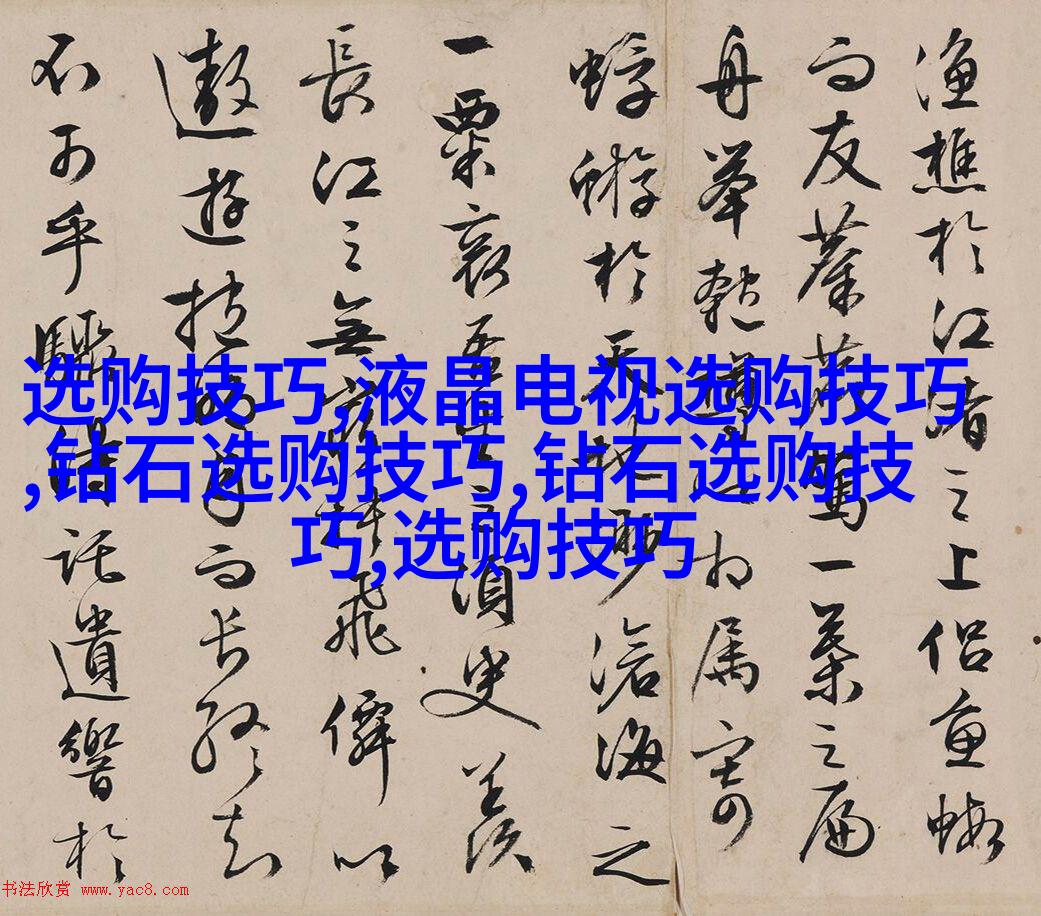 漁樵於江渚之上侣魚蝦
而友麋鹿駕一葉之扁
舟舉匏樽以相属寄
蜉蝣於天地渺滄海之
一粟哀吾生之須臾羨
長江之無窮挾飛僊以
遨遊抱明月而長終知
不可乎驟得託遺響於
选购技巧,液晶电视选购技巧
,钻石选购技巧,钻石选购技
巧,选购技巧
书法欣赏 www.yac8.com